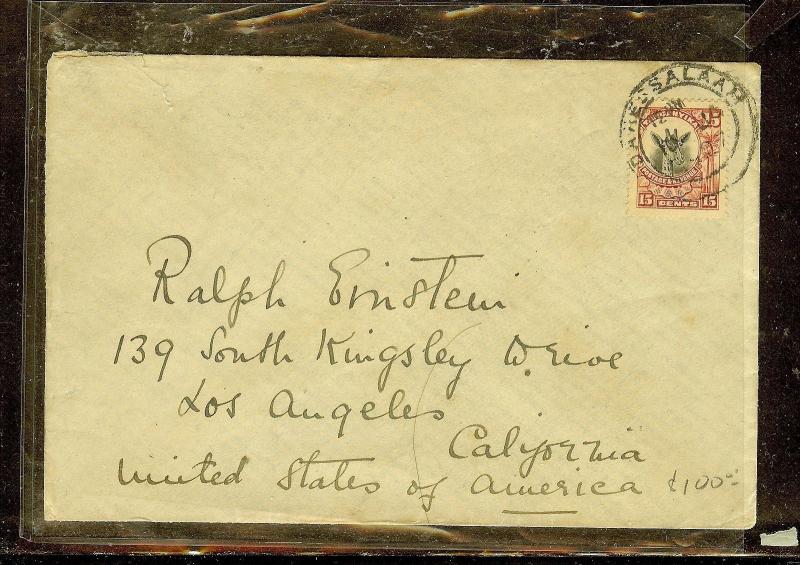 DAR-ES-SALAAM
12 PM
TANGANYIKA
15 15
POSTAGE & REVENUE
15 CENTS 15
Ralph Einstein
139 South Kingsley Drive
Los Angeles
California
United States of America $100.00